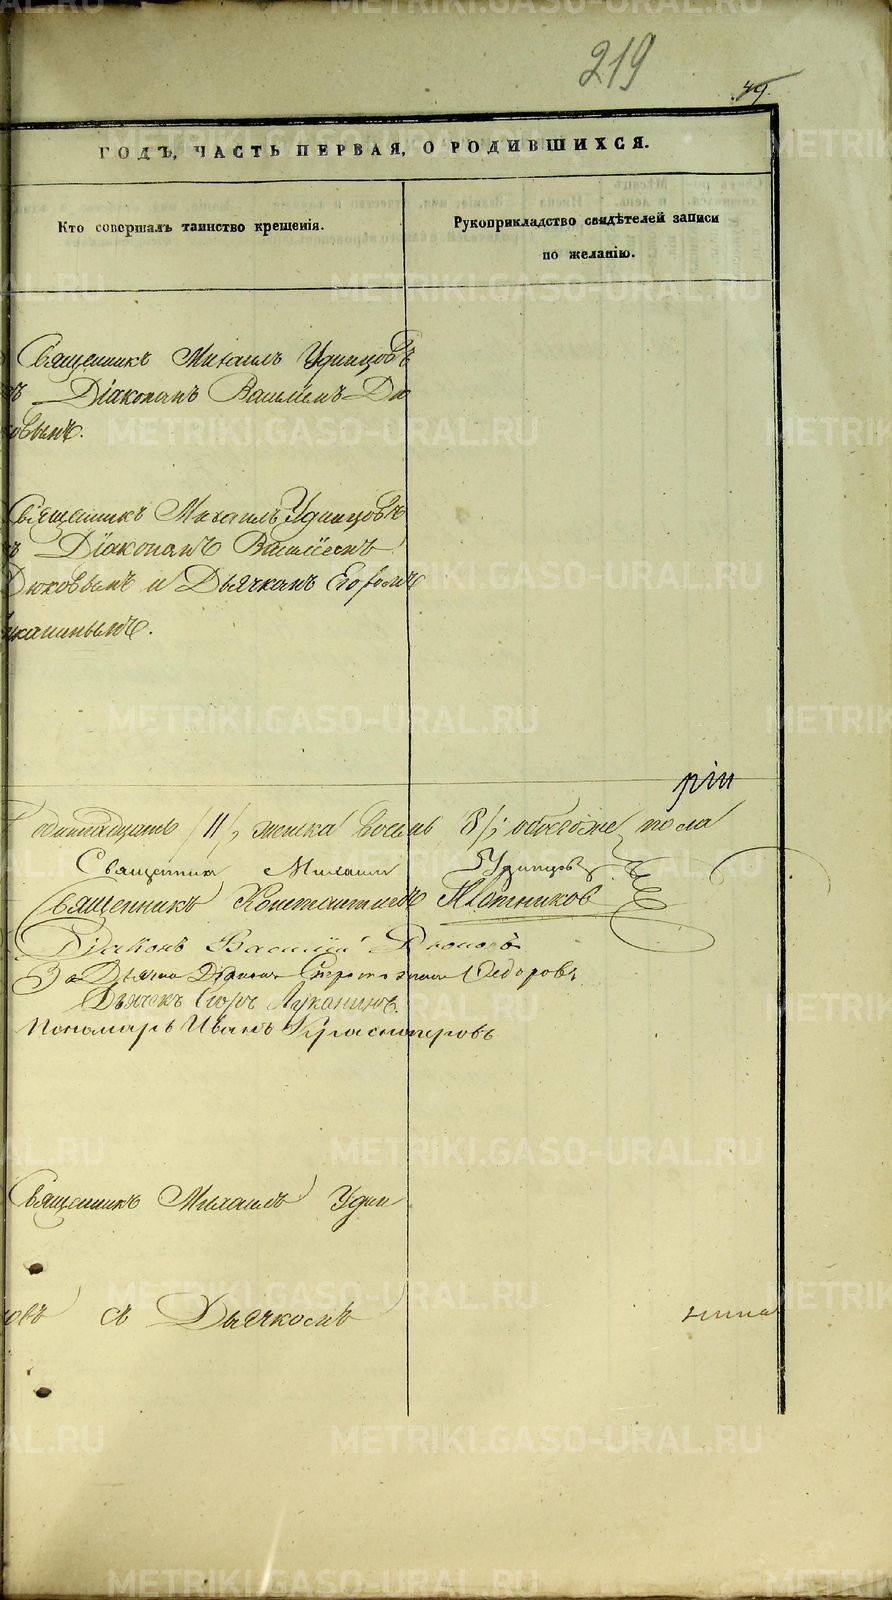 219
49.
ГОДЪ, ЧАСТЬ ПЕРВАЯ, О РОДИВШИХСЯ.
Кто совершалъ таинство крещенія.
Рукоприкладство свидѣтелей записи
по желанію.
Священникъ Михаилъ Удинцовъ
Діакономъ Васильемъ Дю
ковымъ.
Священникъ Михаилъ Удинцовъ
Діакономъ Василіемъ
Дюковымъ и Дьячкомъ Егоромъ
уканинымъ.
рiи
одинадцать /11/, женска восемь /8/, обоего же пола
Священникъ Михаилъ Удинцовъ
Священникъ Константинъ Плотников
Діаконъ Василій Дюковъ
Дьячка Діаконъ Федоровъ
Дьячекъ Егоръ Луканинъ.
Пономарь Иванъ Красноперовъ
Священникъ Михаилъ Удин
овъ съ Дьячкомъ
METRIKI.GASO-URAL.RU